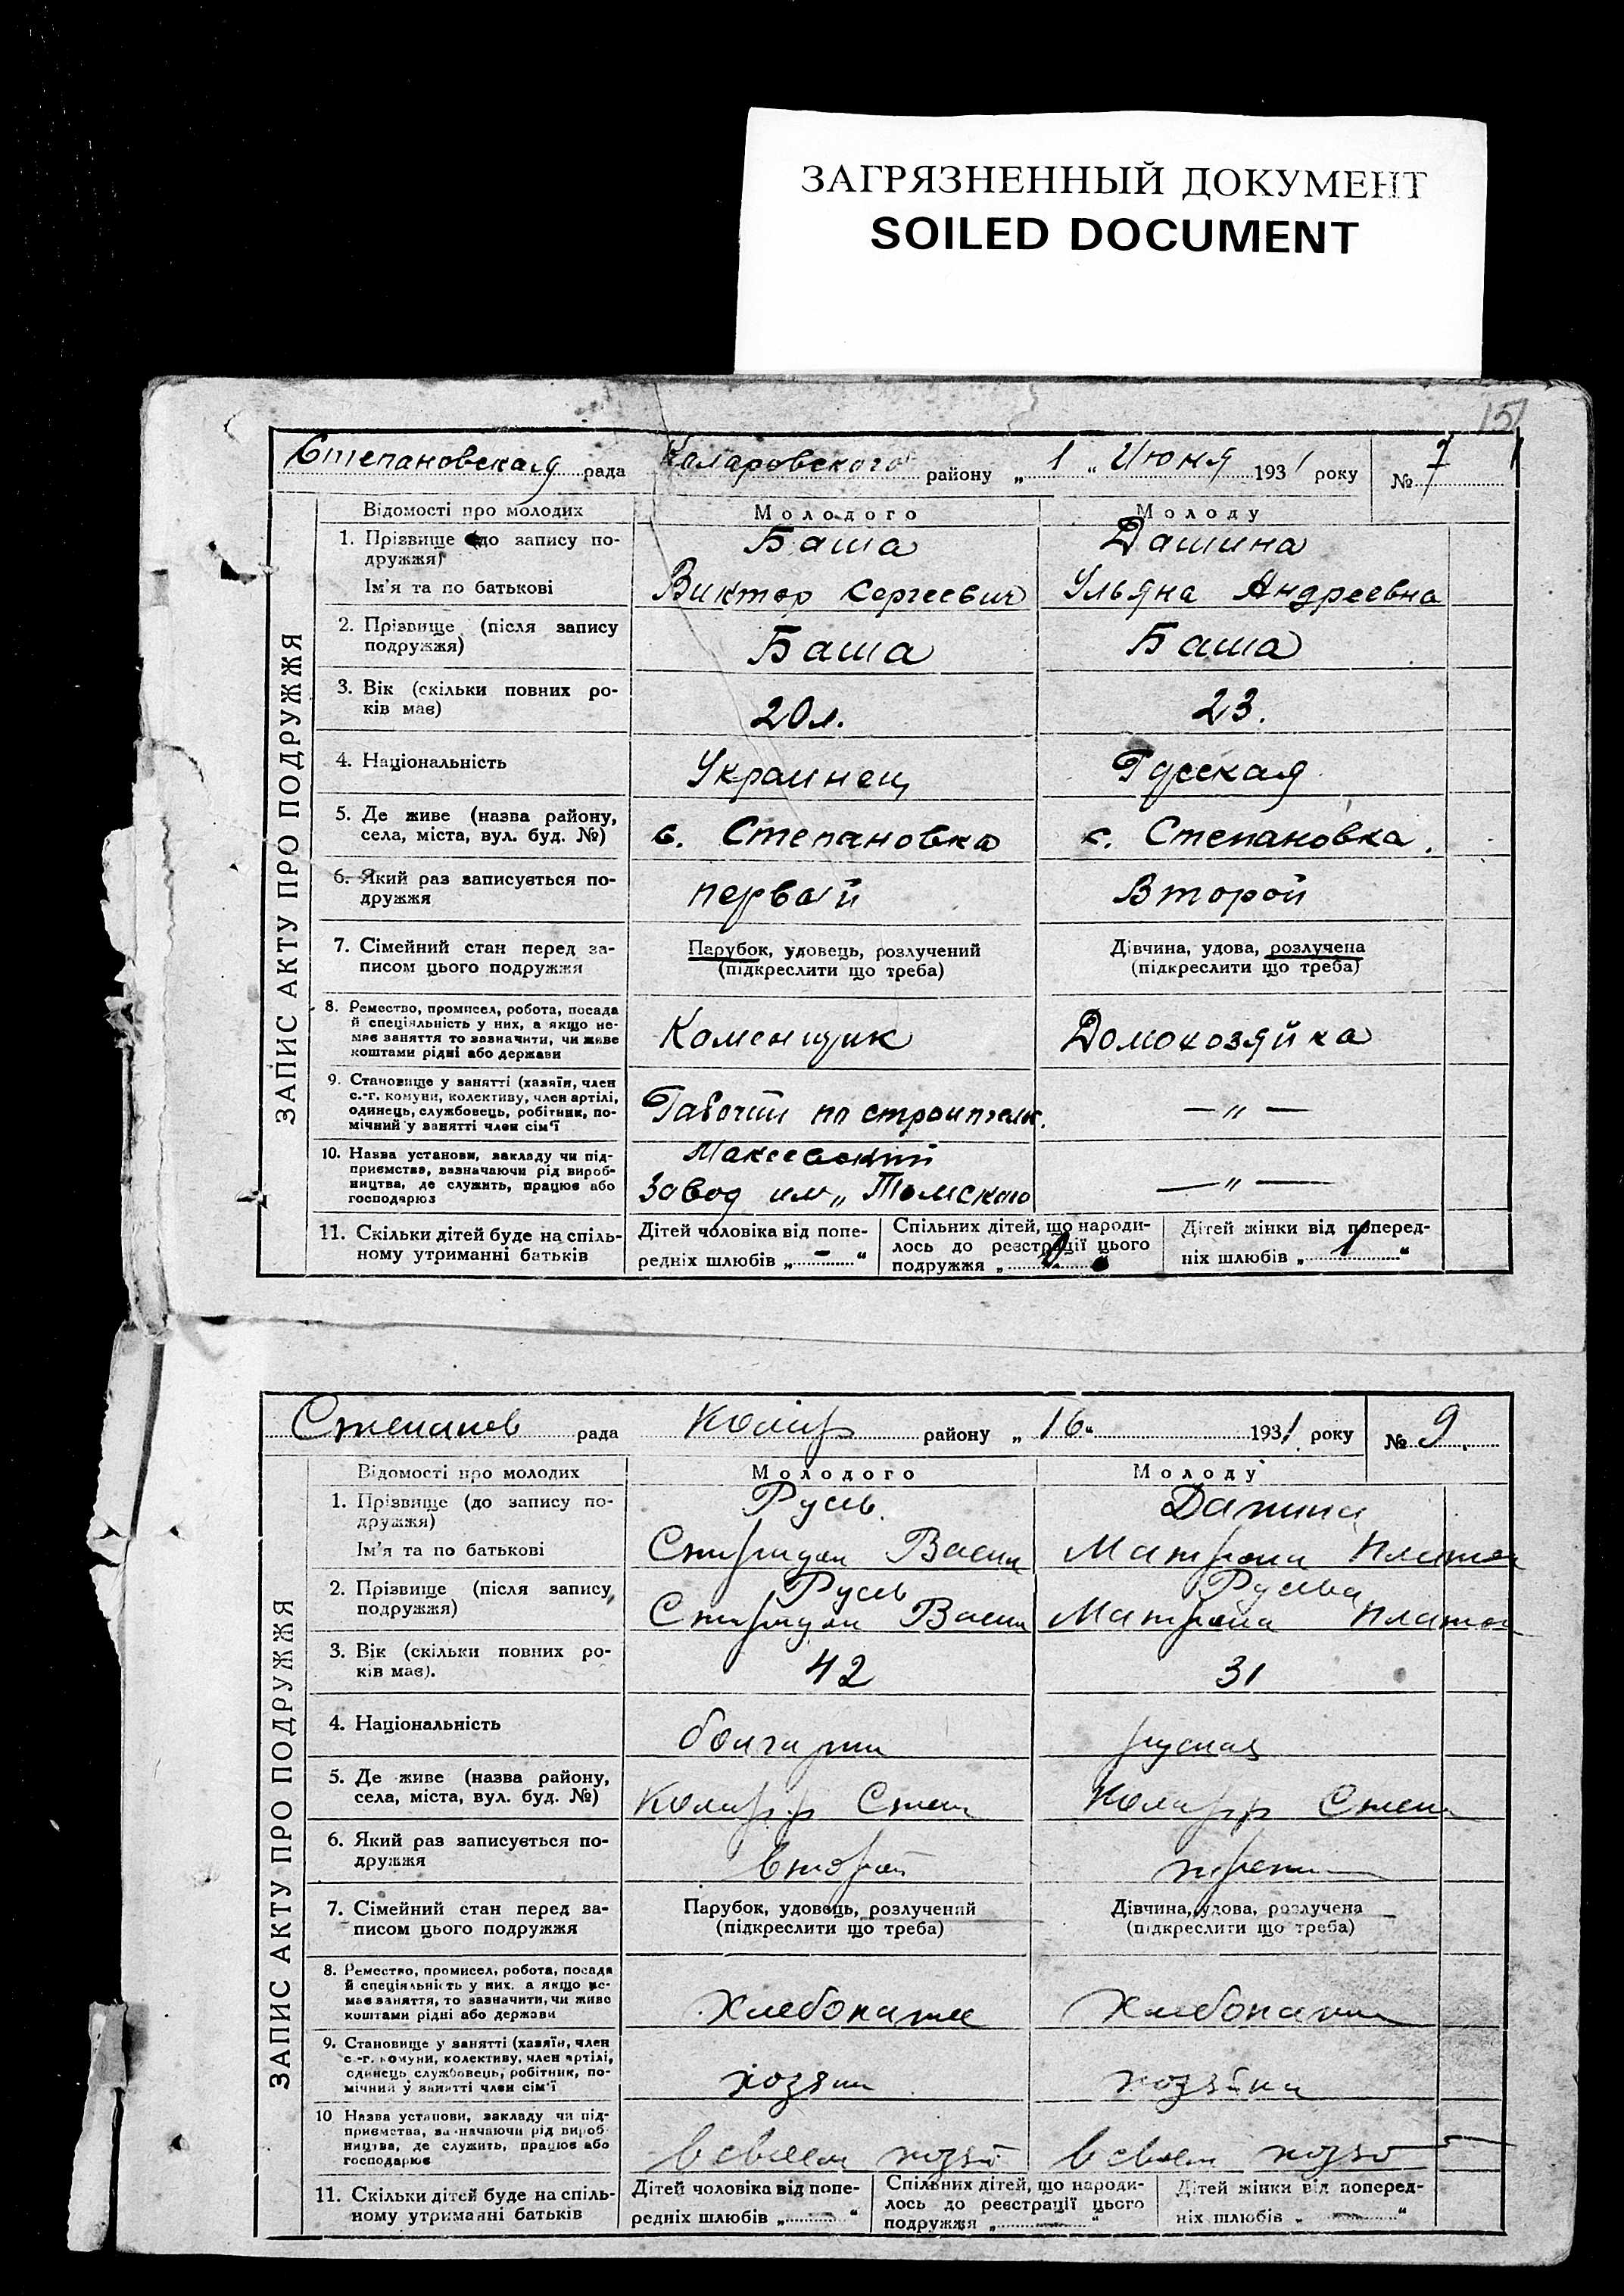 ЗАГРЯЗНЕННЫЙ ДОКУМЕНТ
SOILED DOCUMENT
15
Степановская рада Коларовского району „ 1 “ Июня 1931 року № 7
ЗАПИС АКТУ ПРО ПОДРУЖЖЯ
Відомості про молодих Молодого Молоду
1. Прізвище (до запису по- Баша Дашина
дружжя)
Ім'я та по батькові Виктор Сергеевич Ульяна Андреевна
2. Прізвище (після запису
подружжя) Баша Баша
3. Вік (скільки повних ро-
ків має) 20 л. 23.
4. Національність Украинец Русская
5. Де живе (назва району,
села, міста, вул. буд. №) с. Степановка с. Степановка.
6. Який раз записується по-
дружжя первый Второй
7. Сімейний стан перед за- Парубок, удовець, розлучений Дівчина, удова, розлучена
писом цього подружжя (підкреслити що треба) (підкреслити що треба)
8. Ремество, промисел, робота, посада
й спеціяльність у них, а якщо не-
має заняття то зазначити, чи живе Каменщик Домохозяйка
коштами рідні або держави
9. Становище у занятті (хазяїн, член
с.-г. комуни, колективу, член артілі,
одинець, службовець, робітник, по- Рабочий по строительс. — „ —
мічний у занятті член сім'ї
10. Назва установи, закладу чи під-
приємства, зазначаючи рід вироб-
ництва, де служить, працює або Завод им „ Томского — „ —
господарює
11. Скільки дітей буде на спіль- Дітей чоловіка від попе- Спільних дітей, що народи- Дітей жінки від поперед-
ному утриманні батьків редніх шлюбів „ — “ лось до реєстрації цього ніх шлюбів „ 1 “
подружжя „ 0 “
Степанов рада Колар району „ 16 “ 1931 року № 9.
ЗАПИС АКТУ ПРО ПОДРУЖЖЯ
Відомості про молодих Молодого Молоду
1. Прізвище (до запису по- Русев
дружжя)
Ім'я та по батькові Спиридон Васил Матрона Платон
2. Прізвище (після запису, Русев Русева
подружжя) Спиридон Васил Матрона Платон
3. Вік (скільки повних ро-
ків має). 42 31
4. Національність болгарин руская
5. Де живе (назва району,
села, міста, вул. буд. №) Колар р Степ Колар р Степ
6. Який раз записується по-
дружжя второй
7. Сімейний стан перед за- Парубок, удовець, розлучений Дівчина, удова, розлучена
писом цього подружжя (підкреслити що треба) (підкреслити що треба)
8. Ремество, промисел, робота, посада
й спеціяльність у них, а якщо не-
має заняття, то зазначити, чи живе
коштами рідні або держави хлебопаше хлебопаши
9. Становище у занятті (хазяїн, член
с.-г. комуни, колективу, член артілі,
одинець, службовець, робітник, по- хозяин хозяйка
мічний у занятті член сім'ї
10 Назва установи, закладу чи під-
приємства, зазначаючи рід вироб
ництва, де служить, працює або
господарює в своем хозяй в своем хозяй
11. Скільки дітей буде на спіль- Дітей чоловіка від попе- Спільних дітей, що народи- Дітей жінки від поперед-
ному утриманні батьків редніх шлюбів „ — “ лось до реєстрації цього ніх шлюбів „ — “
подружжя „ — “